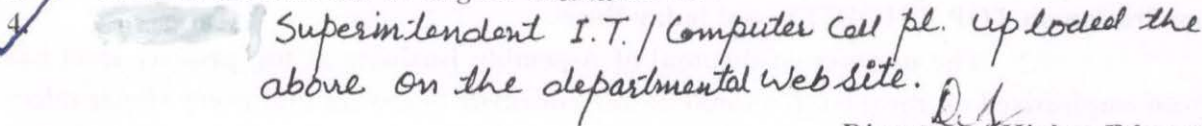 4. Superintendent I.T./Computer Cell pl. uploded the
above on the departmental Web site.